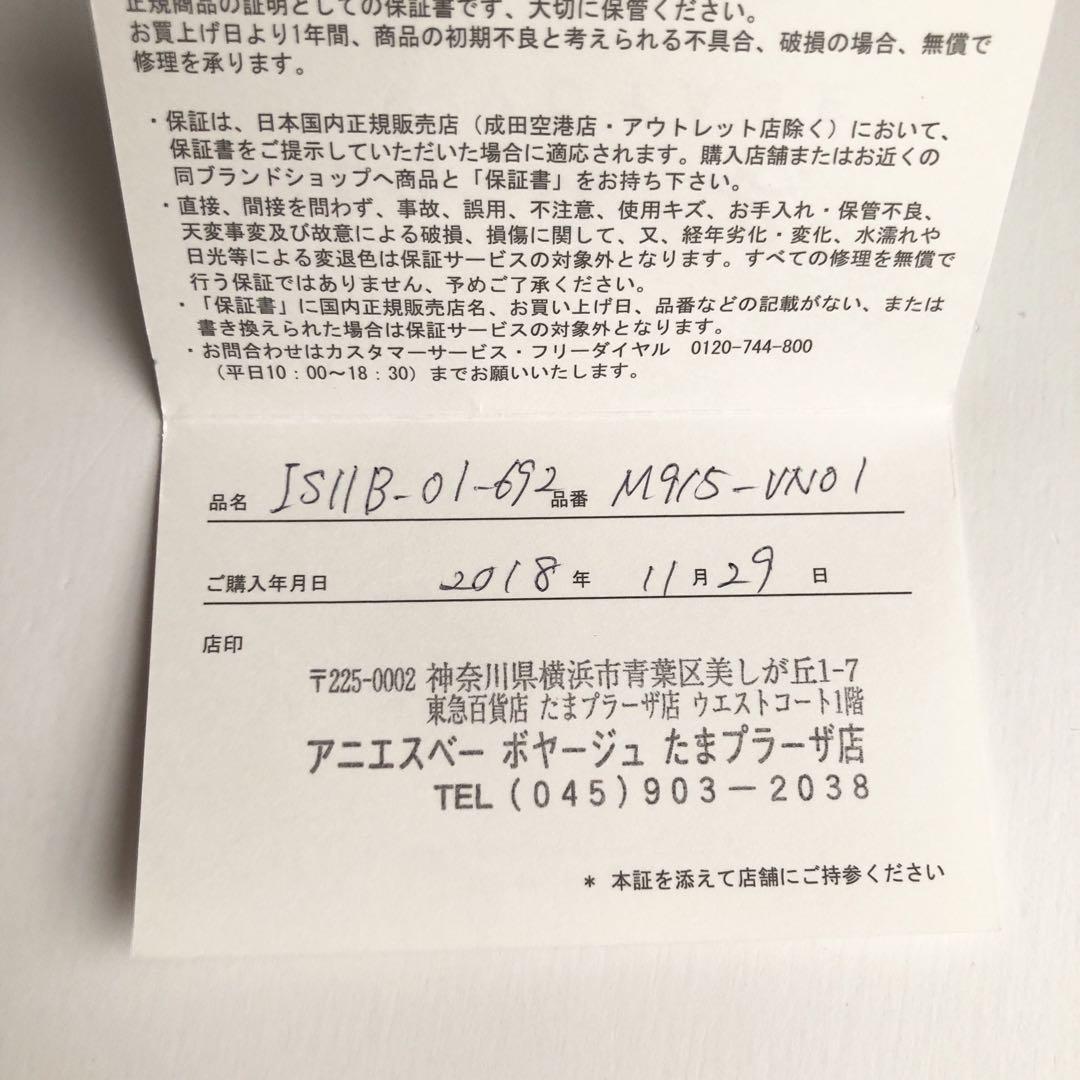 正規商品の証明としての保証書です、大切に保管ください。
お買上げ日より1年間、商品の初期不良と考えられる不具合、破損の場合、無償で
修理を承ります。
・保証は、日本国内正規販売店（成田空港店・アウトレット店除く）において、
保証書をご提示していただいた場合に適応されます。購入店舗またはお近くの
同ブランドショップへ商品と「保証書」をお持ち下さい。
・直接、間接を問わず、事故、誤用、不注意、使用キズ、お手入れ・保管不良、
天変事変及び故意による破損、損傷に関して、又、経年劣化・変化、水濡れや
日光等による変退色は保証サービスの対象外となります。すべての修理を無償で
行う保証ではありません、予めご了承ください。
・「保証書」に国内正規販売店名、お買い上げ日、品番などの記載がない、または
書き換えられた場合は保証サービスの対象外となります。
・お問合わせはカスタマーサービス・フリーダイヤル 0120-744-800
（平日10：00〜18：30）までお願いいたします。
品名 IS11B-01-692 品番 M915-VN01
ご購入年月日 2018 年 11 月 29 日
店印
〒225-0002 神奈川県横浜市青葉区美しが丘1-7
東急百貨店 たまプラーザ店 ウエストコート1階
アニエスベー ボヤージュ たまプラーザ店
TEL（045）903－2038
* 本証を添えて店舗にご持参ください